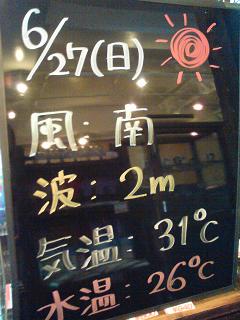 6/27(日)
風: 南
波: 2m
気温: 31℃
水温: 26℃